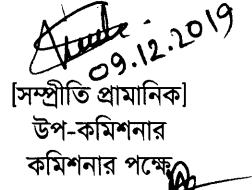 09.12.2019
[সম্প্রীতি প্রামানিক]
উপ-কমিশনার
কমিশনার পক্ষে